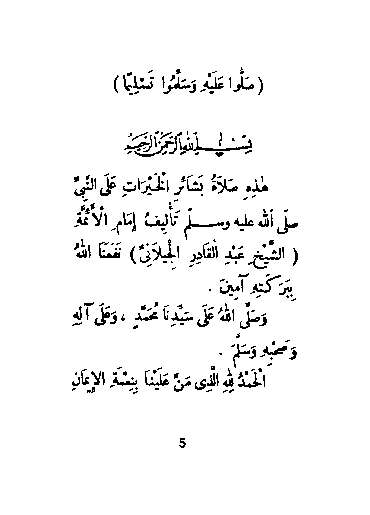 ( صَلُّوا عَلَيْهِ وَسَلِّمُوا تَسْلِيمًا )
بِسْمِ اللهِ الرَّحْمٰنِ الرَّحِيمِ
هٰذِهِ صَلَاةُ بَشَائِرِ الْخَيْرَاتِ عَلَى النَّبِيِّ
صلّى الله عليه وسلّم تَأْلِيفُ إِمَامِ الْأَئِمَّةِ
( الشَّيْخِ عَبْدِ الْقَادِرِ الْجِيلَانِيِّ ) نَفَعَنَا اللهُ
بِبَرَكَتِهِ آمِينَ .
وَصَلَّى اللهُ عَلَى سَيِّدِنَا مُحَمَّدٍ ، وَعَلَى آلِهِ
وَصَحْبِهِ وَسَلَّمَ .
الْحَمْدُ لِلهِ الَّذِى مَنَّ عَلَيْنَا بِنِعْمَةِ الْإِيمَانِ
5